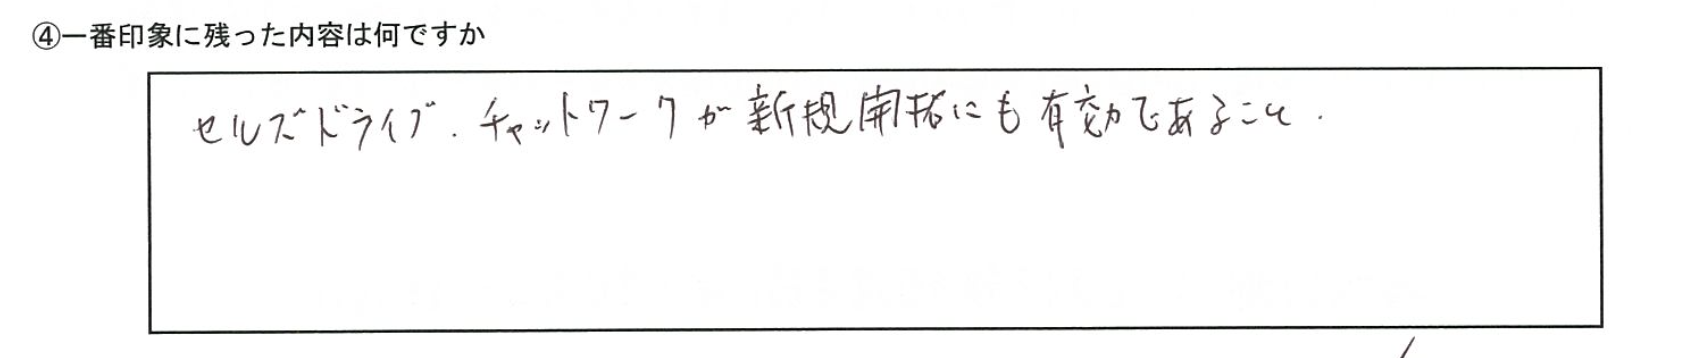 ④一番印象に残った内容は何ですか
セルズドライブ、チャットワークが新規開拓にも有効であること.